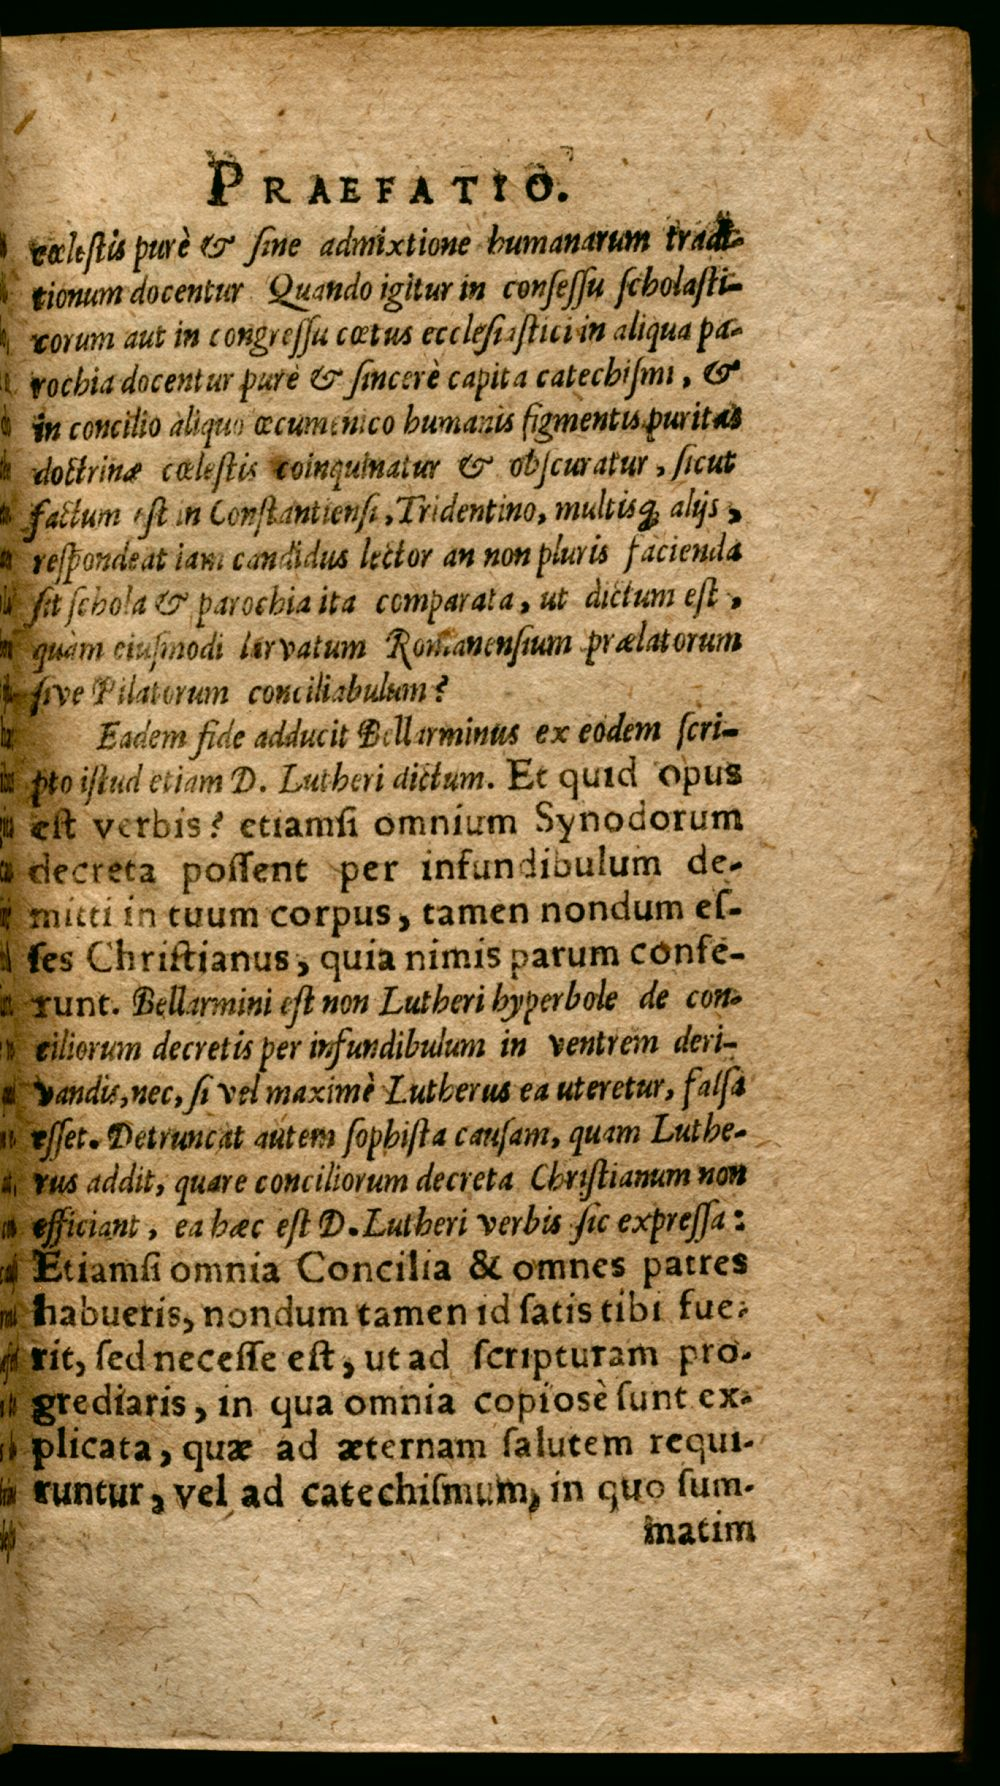 PRAEFATIO.
cœlestis purè & sine admixtione humanarum tradi-
tionum docentur Quando igitur in consessu scholasti-
corum aut in congressu cœtus ecclesiastici in aliqua pa-
rochia docentur purè & sincerè capita catechismi, &
in concilio aliquo œcumenico humanis figmentis puritas
doctrinæ cœlestis coinquinatur & obscuratur, sicut
factum est in Constantiensi, Tridentino, multisq; alijs,
respondeat iam candidus lector an non pluris facienda
sit schola & parochia ita comparata, ut dictum est,
quàm eiusmodi larvatum Romanensium prælatorum
sive Pilatorum conciliabulum?
Eadem fide adducit Bellarminus ex eodem scri-
pto istud etiam D. Lutheri dictum. Et quid opus
est verbis? etiamsi omnium Synodorum
decreta possent per infundibulum de-
mitti in tuum corpus, tamen nondum es-
ses Christianus, quia nimis parum confe-
runt. Bellarmini est non Lutheri hyperbole de con-
ciliorum decretis per infundibulum in ventrem deri-
vandis, nec, si vel maximè Lutherus ea uteretur, falsa
esset. Detruncat autem sophista causam, quam Luthe-
rus addit, quare conciliorum decreta Christianum non
efficiant, ea hæc est D. Lutheri verbis sic expressa:
Etiamsi omnia Concilia & omnes patres
habueris, nondum tamen id satis tibi fue-
rit, sed necesse est, ut ad scripturam pro-
grediaris, in qua omnia copiosè sunt ex-
plicata, quæ ad æternam salutem requi-
runtur, vel ad catechismum, in quo sum-
matim